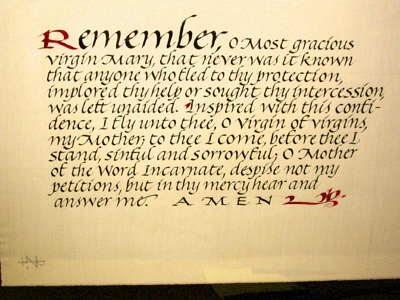 Remember, O Most gracious
virgin Mary, that never was it known
that anyone who fled to thy protection,
implored thy help or sought thy intercession,
was left unaided. Inspired with this confi-
dence, I fly unto thee, O Virgin of virgins,
my Mother; to thee I come, before thee I
stand, sinful and sorrowful; O Mother
of the Word Incarnate, despise not my
petitions, but in thy mercy hear and
answer me. AMEN